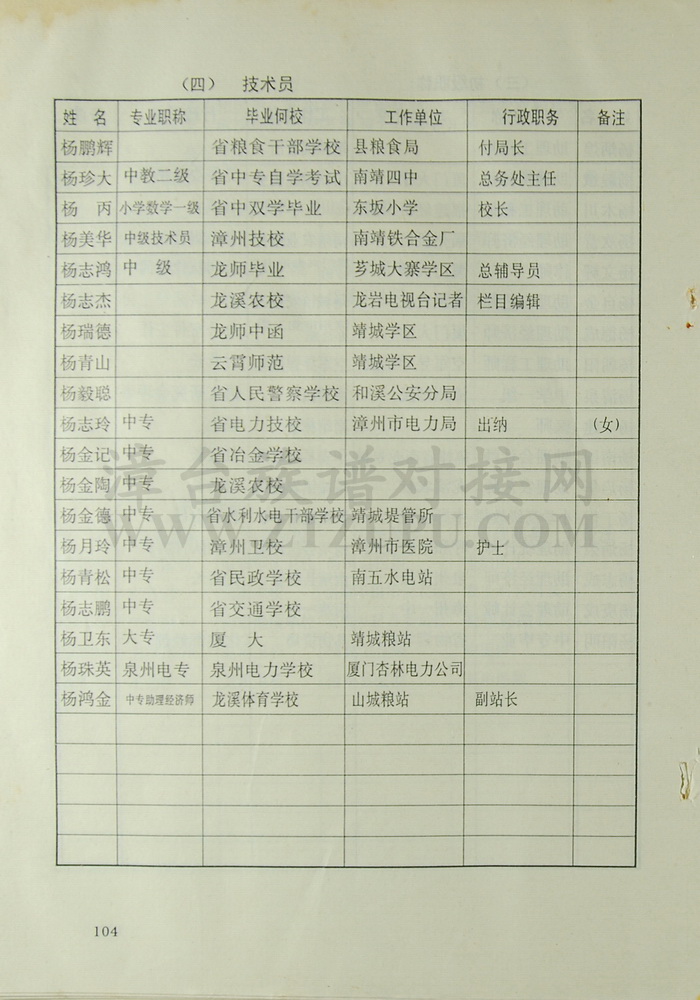 （四） 技术员
姓 名 专业职称 毕业何校 工作单位 行政职务 备注
杨鹏辉 省粮食干部学校 县粮食局 付局长
杨珍大 中教二级 省中专自学考试 南靖四中 总务处主任
杨 丙 小学数学一级 省中双学毕业 东坂小学 校长
杨美华 中级技术员 漳州技校 南靖铁合金厂
杨志鸿 中 级 龙师毕业 芗城大寨学区 总辅导员
杨志杰 龙溪农校 龙岩电视台记者 栏目编辑
杨瑞德 龙师中函 靖城学区
杨青山 云霄师范 靖城学区
杨毅聪 省人民警察学校 和溪公安分局
杨志玲 中专 省电力技校 漳州市电力局 出纳 (女)
杨金记 中专 省冶金学校
杨金陶 中专 龙溪农校
杨金德 中专 省水利水电干部学校 靖城堤管所
杨月玲 中专 漳州卫校 漳州市医院 护士
杨青松 中专 省民政学校 南五水电站
杨志鹏 中专 省交通学校
杨卫东 大专 厦 大 靖城粮站
杨珠英 泉州电专 泉州电力学校 厦门杏林电力公司
杨鸿金 中专助理经济师 龙溪体育学校 山城粮站 副站长
漳台族谱对接网
104